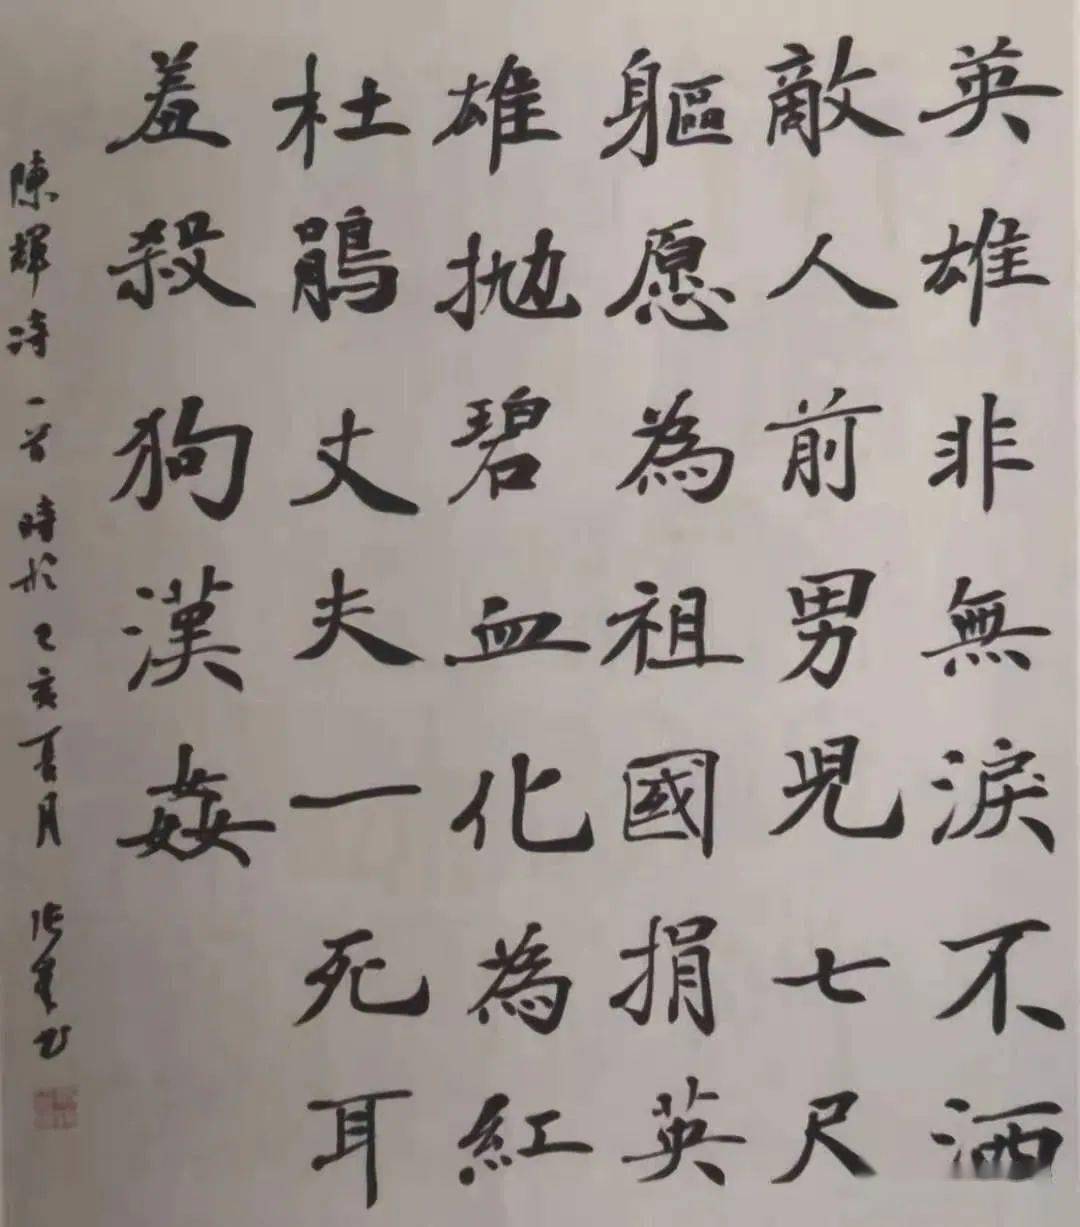 英雄非無淚不洒
敵人前男兒七尺
軀愿為祖國捐英
雄抛碧血化為紅
杜鵑丈夫一死耳
羞殺狗漢姦
陳輝诗一首時於己亥夏月